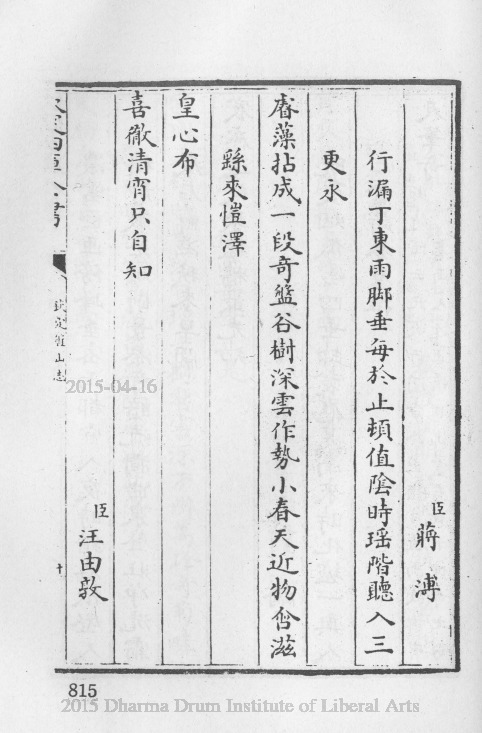 臣蔣溥
行漏丁東雨脚垂每於止頓值陰時瑶階聽入三
更永
睿藻拈成一段竒盤谷樹深雲作勢小春天近物含滋
繇來愷澤
皇心布
喜徹清宵只自知
臣汪由敦
欽定四庫全書
欽定盤山志
十
2015-04-16
815
2015 Dharma Drum Institute of Liberal Arts